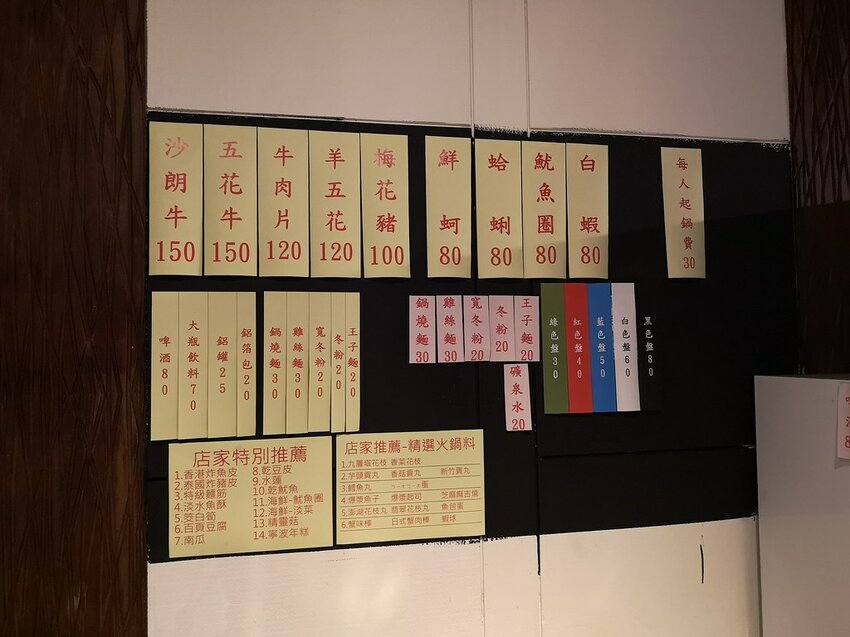 沙朗牛150
五花牛150
牛肉片120
羊五花120
梅花豬100
鮮蚵80
蛤蜊80
魷魚圈80
白蝦80
每人起鍋費30
啤酒80
大瓶飲料70
鋁罐25
鋁箔包20
鍋燒麵30
雞絲麵30
寬冬粉20
冬粉20
王子麵20
鍋燒麵30
雞絲麵30
寬冬粉20
冬粉20
王子麵20
礦泉水20
綠色盤30
紅色盤40
藍色盤50
白色盤60
黑色盤80
店家特別推薦
1.香港炸魚皮
2.泰國炸豬皮
3.特級麵筋
4.淡水魚酥
5.筊白筍
6.百頁豆腐
7.南瓜
8.乾豆皮
9.水蓮
10.乾魷魚
11.海鮮-魷魚圈
12.海鮮-淡菜
13.精靈菇
14.寧波年糕
店家推薦-精選火鍋料
1.九層塔花枝 香菜花枝
2.芋頭貢丸 香菇貢丸 新竹貢丸
3.鱈魚丸
4.爆漿魚子 爆漿起司 芝麻麻吉燒
5.澎湖花枝丸 翡翠花枝丸 魚包蛋
6.蟹味棒 日式蟹肉棒 蝦球